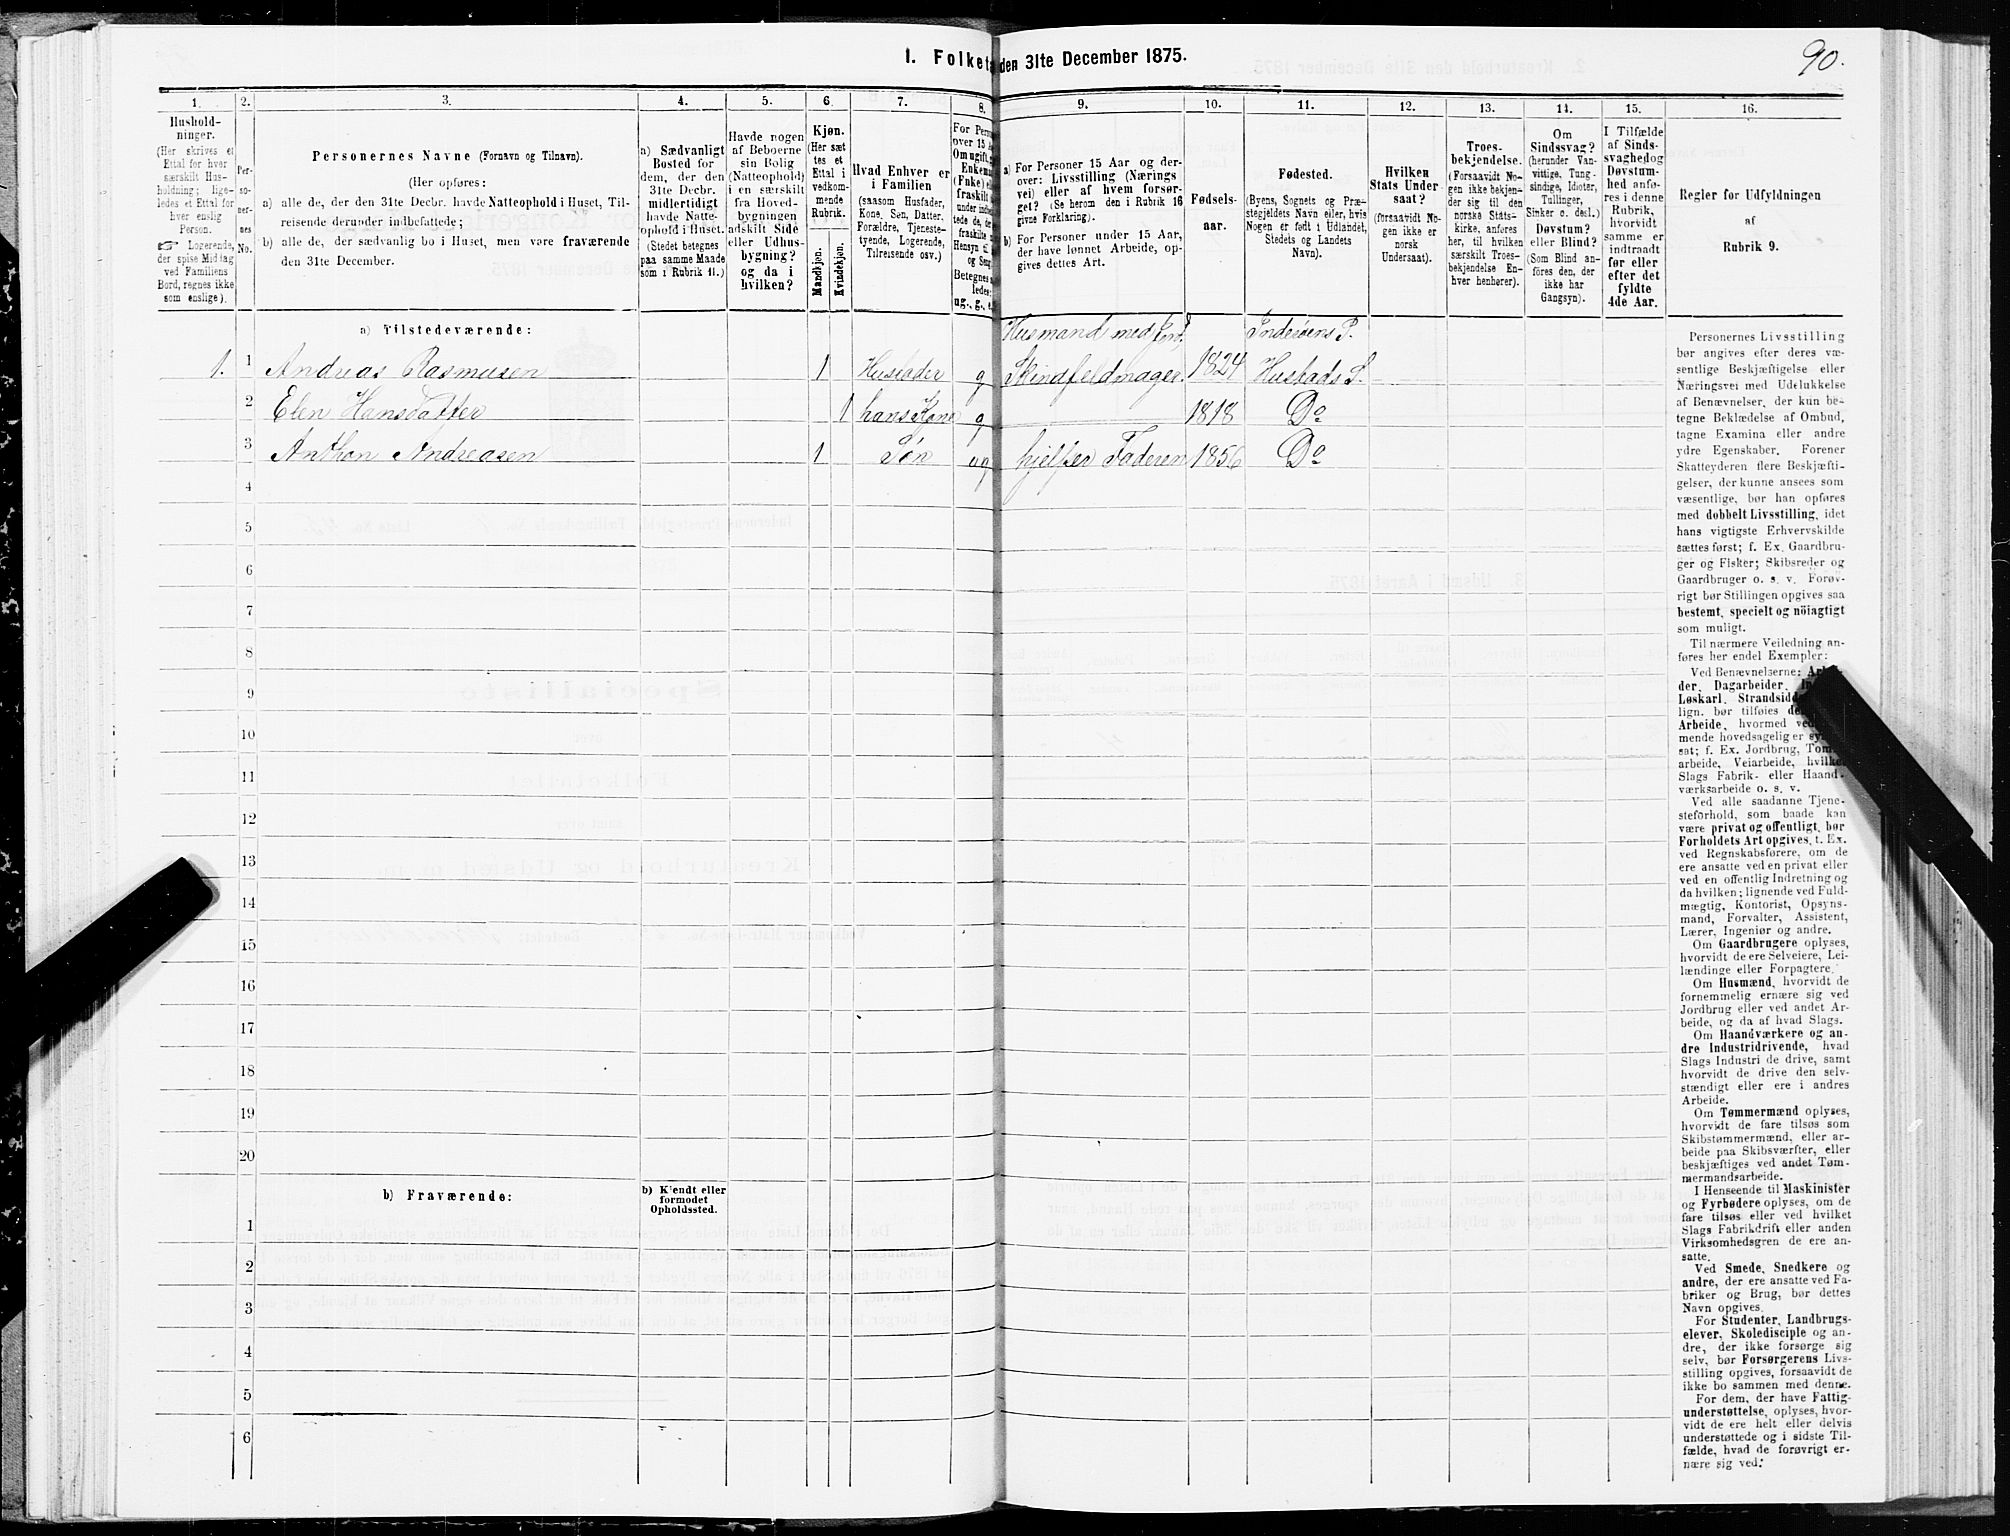 1. Folketæ den 31te December 1875.
90.
1.
2.
3.
4.
5.
6.
7.
8.
9.
10.
11.
12.
13.
14.
15.
16.
Hushold-
ninger.
(Her skrives et
Ettal for hver
særskilt Hus-
holdning; lige-
ledes et Ettal for
hver enslig
Person.
☞ Logerende,
der spise Middag
ved Familiens
Bord, regnes ikke
som enslige).
Per-
so-
ner-
nes
No.
Personernes Navne (Fornavn og Tilnavn).
(Her opføres:
a) alle de, der den 31te Decbr. havde Natteophold i Huset, Til-
reisende derunder indbefattede;
b) alle de, der sædvanlig bo i Huset, men vare fraværende
den 31te December.
a) Sædvanligt
Bosted for
dem, der den
31te Decbr.
midlertidigt
havde Natte-
ophold i Huset.
(Stedet betegnes
paa samme Maade
som i Rubrik 11.)
Havde nogen
af Beboerne
sin Bolig
(Natteophold)
i en særskilt
fra Hoved-
bygningen
adskilt Side
eller Udhus-
bygning?
og da i
hvilken?
Kjøn.
(Her sæt-
tes et
Ettal i
vedkom-
mende
Rubrik.
Mandkjøn.
Kvindekjøn.
Hvad Enhver er
i Familien
(saasom Husfader,
Kone, Søn, Datter.
Forældre, Tjeneste-
tyende, Logerende,
Tilreisende osv.)
For Perso
over 15 A
Om ugift, g
Enkem
(Enke) el
fraskilt
under indb
tede de, de
fraskilte m
Hensyn til
og Seng
Betegnes
ledes:
ug., g., e.
a) For Personer 15 Aar og der-
over: Livsstilling (Nærings
vei) eller af hvem forsør-
get? (Se herom den i Rubrik 16
givne Forklaring).
b) For Personer under 15 Aar,
der have lønnet Arbeide, op-
gives dettes Art.
Fødsels-
aar.
Fødested.
(Byens, Sognets og Præ-
stegjeldets Navn eller, hvis
Nogen er født i Udlandet,
Stedets og Landets
Navn).
Hvilken
Stats Under-
saat?
(forsaavidt No-
gen ikke er
norsk
Undersaat).
Troes-
bekjendelse.
(Forsaavidt No-
gen ikke bekjen-
der sig til den
norske Stats-
kirke, anføres
her, til hvilken
særskilt Troes-
bekjendelse En-
hver henhører).
Om
Sindssvag?
(herunder Van-
vittige, Tung-
sindige, Idioter,
Tullinger,
Sinker o. desl.)
Døvstum?
eller Blind?
(Som Blind an-
føres den, der
ikke har
Gangsyn).
I Tilfælde
af Sinds-
svaghed og
Døvstum-
hed anfø-
res i denne
Rubrik,
hvorvidt
samme er
indtraadt
før eller
efter det
fyldte
4de Aar.
Regler for Udfyldningen
af
Rubrik 9.
a) Tilstedeværende:
1. 1 Andreas Rasmusen 1 Husfader g Husmand med Jord, Skindfeldmager. 1824 Inderøens P. Hustads S.
2 Elen Hansdatter 1 hans Kone g 1818 Do
3 Anthon Andreasen 1 Søn ug hjelper Faderen 1856 Do
4
5
6
7
8
9
10
11
12
13
14
15
16
17
18
19
20
b) Fraværende:
b) Kjendt eller
formodet
Opholdssted.
1
2
3
4
5
6
Personernes Livsstilling
bør angives efter deres væ-
sentlige Beskjæftigelse eller
Næringsvei med Udelukkelse
af Benævnelser, der kun be-
tegne Beklædelse af Ombud,
tagne Examina eller andre
ydre Egenskaber. Forener
Skatteyderen flere Beskjæfti-
gelser, der kunne ansees som
væsentlige, bør han opføres
med dobbelt Livsstilling, idet
hans vigtigste Erhvervskilde
sættes først; f. Ex. Gaardbru-
ger og Fisker; Skibsreder og
Gaardbruger o. s. v. Forøv-
rigt bør Stillingen opgives saa
bestemt, specielt og nöiagtigt
som muligt.
Til nærmere Veiledning an-
føres her endel Exempler:
Ved Benævnelserne: Ar
der, Dagarbeider, In
Løskarl, Strandsid
lign. bør tilføies de
Arbeide, hvormed ved
mende hovedsagelig er sys
sat; f. Ex. Jordbrug, Tom
arbeide, Veiarbeide, hvilke
Slags Fabrik- eller Haand-
værksarbeide o. s. v.
Ved alle saadanne Tjene-
steforhold, som baade kan
være privat og offentligt, bør
Forholdets Art opgives, t. Ex.
ved Regnskabsførere, om de
ere ansatte ved en privat eller
ved en offentlig Indretning og
da hvilken; lignende ved Fuld-
mægtig, Kontorist, Opsyns-
mand, Forvalter, Assistent,
Lærer, Ingeniør og andre.
Om Gaardbrugere oplyses,
hvorvidt de ere Selveiere, Lei-
lændinge eller Forpagtere.
Om Husmænd, hvorvidt de
fornemmelig ernære sig ved
Jordbrug eller ved andet Ar-
beide, og da af hvad Slags.
Om Haandværkere og an-
dre Industridrivende, hvad
Slags Industri de drive, samt
hvorvidt de drive den selv-
stændigt eller ere i andres
Arbeide.
Om Tømmermænd oplyses,
hvorvidt de fare tilsøs som
Skibstømmermænd, eller ar-
beide paa Skibsværfter, eller
beskjæftiges ved andet Tøm-
mermandsarbeide.
I Henseende til Maskinister
og Fyrbødere oplyses, om de
fare tilsøs eller ved hvilket
Slags Fabrikdrift eller anden
Virksomhedsgren de ere an-
satte.
Ved Smede, Snedkere og
andre, der ere ansatte ved Fa-
briker og Brug, bør dettes
Navn opgives.
For Studenter, Landbrugs-
elever, Skoledisciple og an-
dre, der ikke forsørge sig
selv, bør Forsørgerens Livs-
stilling opgives, forsaavidt de
ikke bo sammen med denne.
For dem, der have Fattig-
understøttelse, oplyses, hvor-
vidt de ere helt eller delvis
understøttede og i sidste Til-
fælde, hvad de forøvrigt er-
nære sig ved.